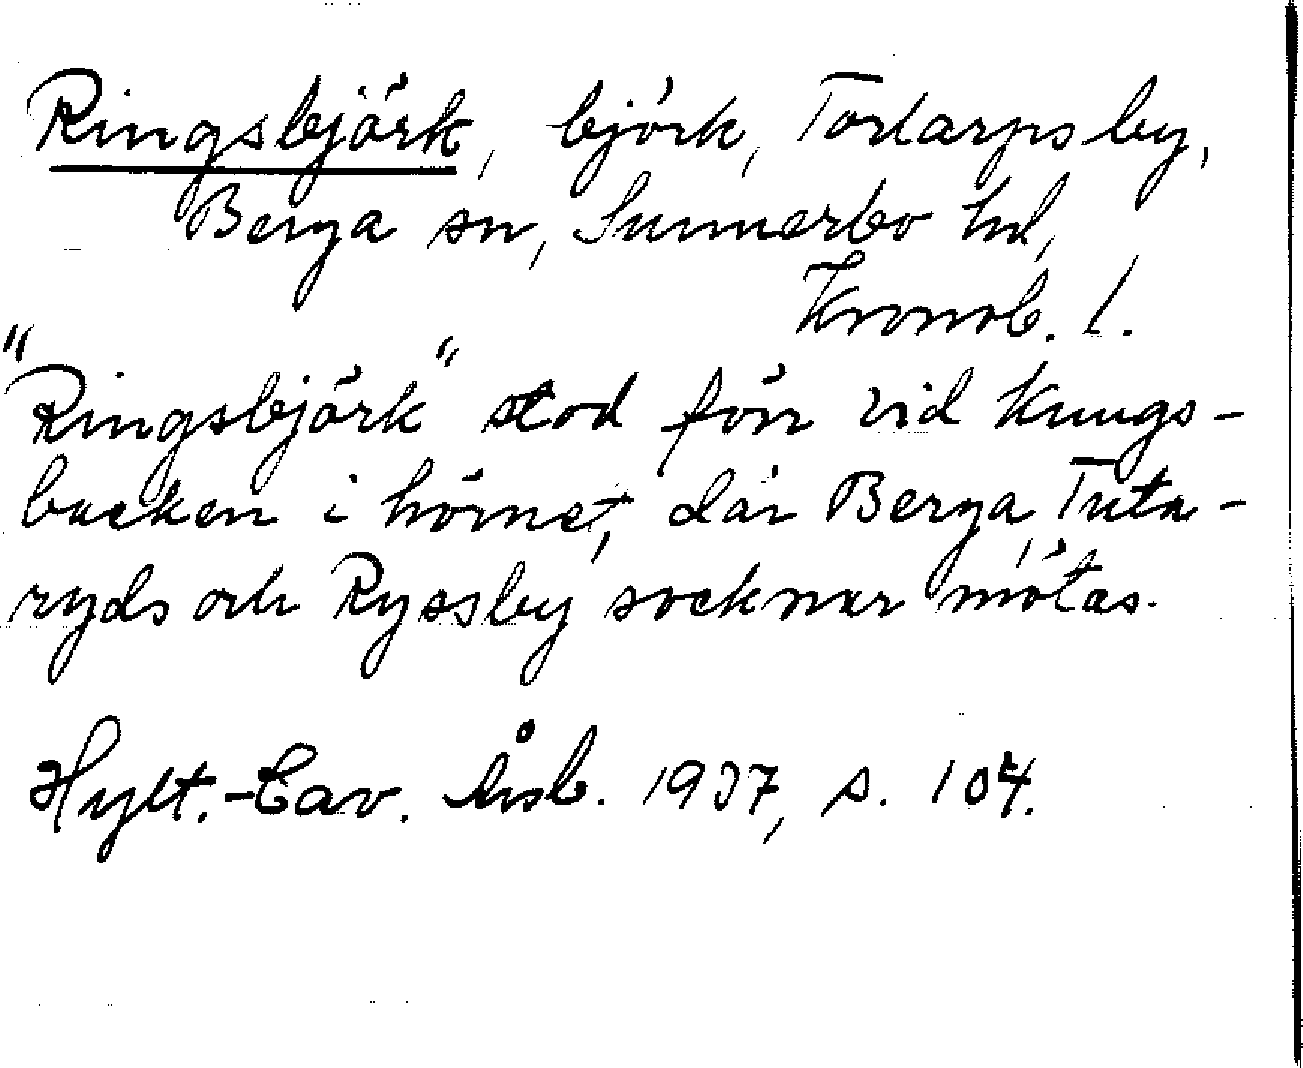 Ringsbjörk, björk, Torlarps by,
Berga sn, Sunnerbo hd,
Kronob. l.
"Ringsbjörk" stod förr vid Kungs-
backen i hörnet, där Berga, Tuta-
ryds och Ryssby socknar mötas.
Hylt.-Cav. Årsb. 1937, s. 104.